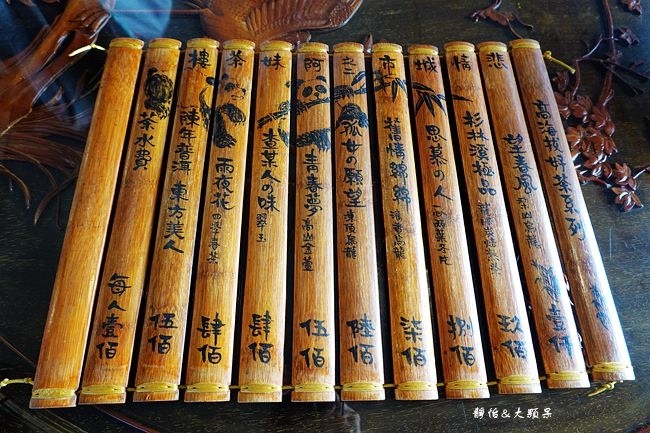 悲情城市之二阿妹茶樓
高海拔好茶系列
望春風 梨山烏龍 壹仟
杉林溪極品 玖佰
思慕の人 捌佰
舊情綿綿 清香烏龍 柒佰
孤女の願望 凍頂烏龍 陸佰
青春夢 高山金萱 伍佰
查某人の味 翠玉 肆佰
雨夜花 四季春茶 肆佰
陳年普洱 東方美人 伍佰
茶水費 每人壹佰
靜怡&大顆呆